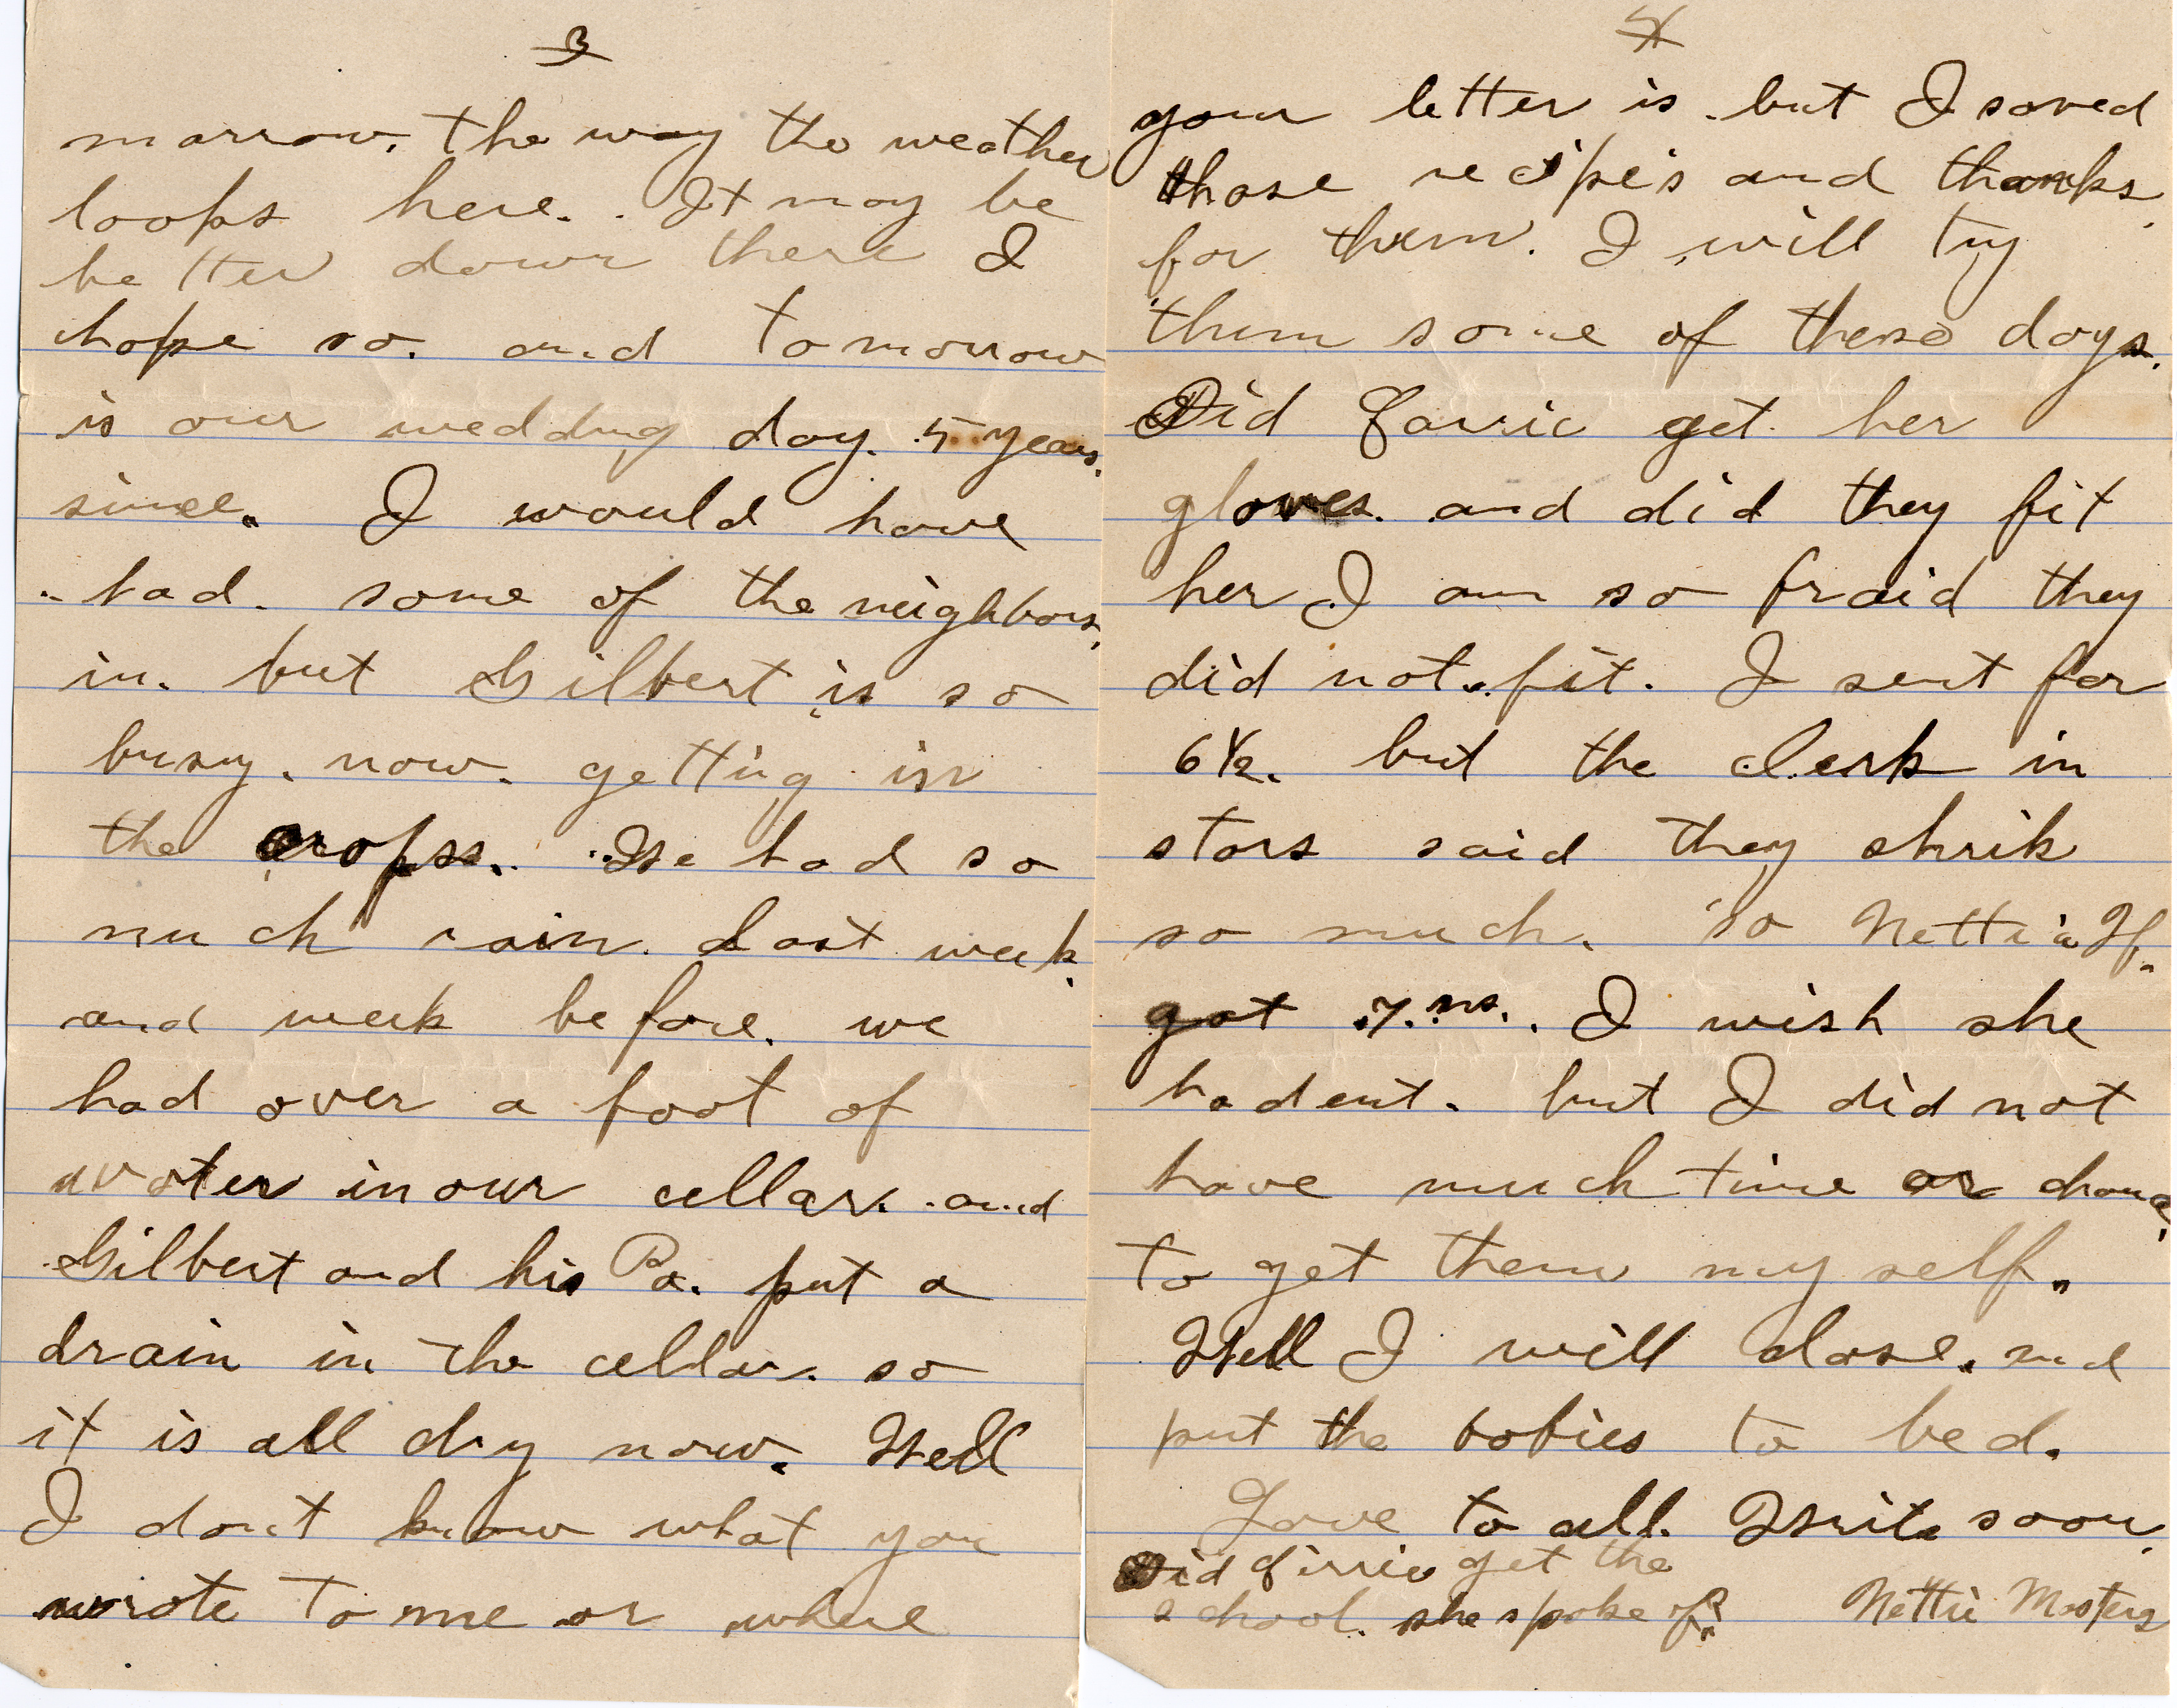 3
marrow. the way the weather
loops here. It may be
better down there I
hope so. and tomorrow
is our wedding day. 5 years.
since. I would have
had. some of the neighbors,
in. but Gilbert is so
busy. now. getting in
the crops. We had so
much rain. last week.
and week before. we
had over a foot of
water in our cellar. and
Gilbert and his Pa. put a
drain in the cellar. so
it is all dry now. Well
I don't know what you
wrote to me or where
4
your letter is. but I saved
those recipes and thanks.
for them. I will try
them some of these days.
Did get her
gloves. and did they fit
her I am so fraid they
did not fit. I sent for
6½. but the clerk in
stors said they shrik
so much. so Nettie H.
got 7.ns. I wish she
hadent. but I did not
have much time or chance,
to get them my self.
Well I will close. and
put the babies to bed.
Love to all. Write soon.
Did get the
school. she spoke of?
Nettie Masters